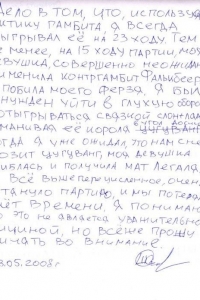 Дело в том, что, используя
тактику гамбита, я всегда
выигрывал её на 23 ходу. Тем
не менее, на 15 ходу партии, моя
девушка, совершенно неожиданно
применила контргамбит Фалькбеера
побила моего ферзя. Я был
вынужден уйти в глухую оборону
отыгрываться связкой слона,
заманивая её короля
цугцванг
когда я уже ожидал, что нам с ней
грозит цугцванг, моя девушка
ошиблась и получила мат Легаля.
Всё вышеперечисленное, очень
затянуло партию, и мы потеряли
счёт времени. Я понимаю
что это не является уважительной
причиной, но всё же прошу
принять во внимание.
.05.2008г.